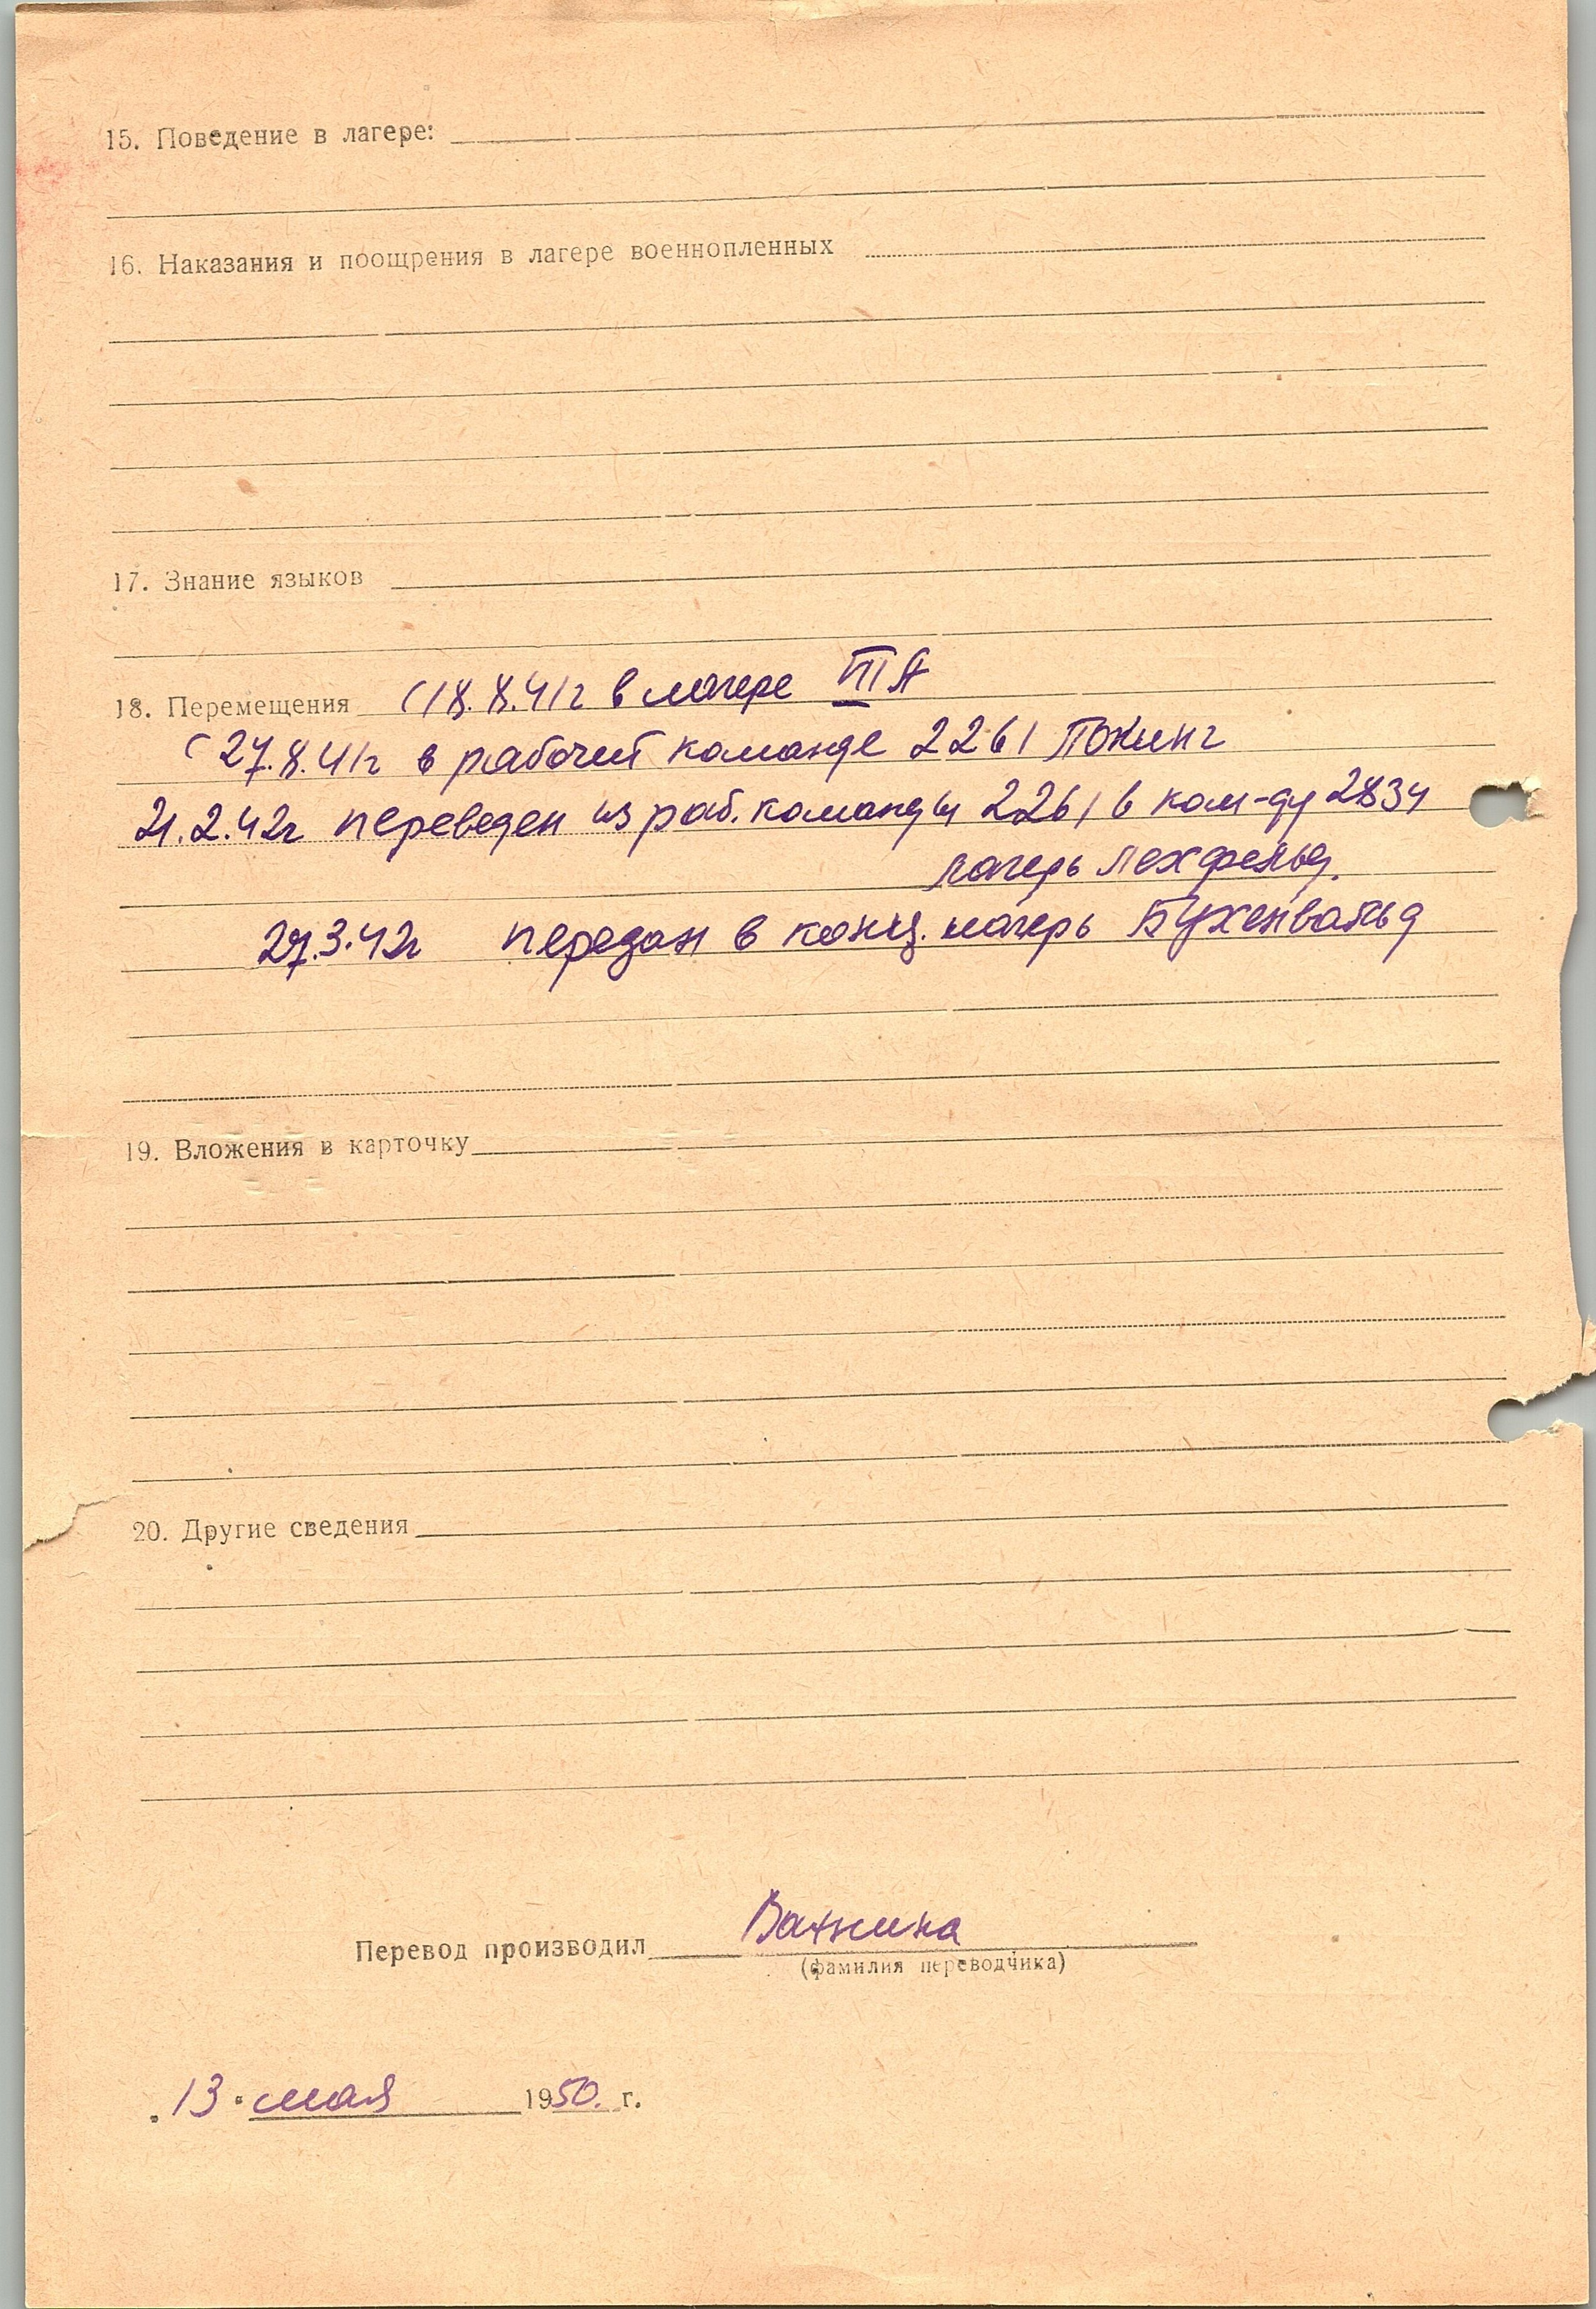 15. Поведение в лагере:
16. Наказания и поощрения в лагере военнопленных
17. Знание языков
18. Перемещения С 18.8.41г в лагере
С 27.8.41г в рабочей команде 2261 Покинг
21.2.42г переведен из раб. команды 2261 в ком-ду 2834
лагерь Лехфельд.
27.3.42г передан в конц. лагерь Бухенвальд
19. Вложения в карточку
20. Другие сведения
Перевод производил
(фамилия переводчика)
„13" мая 1950. г.